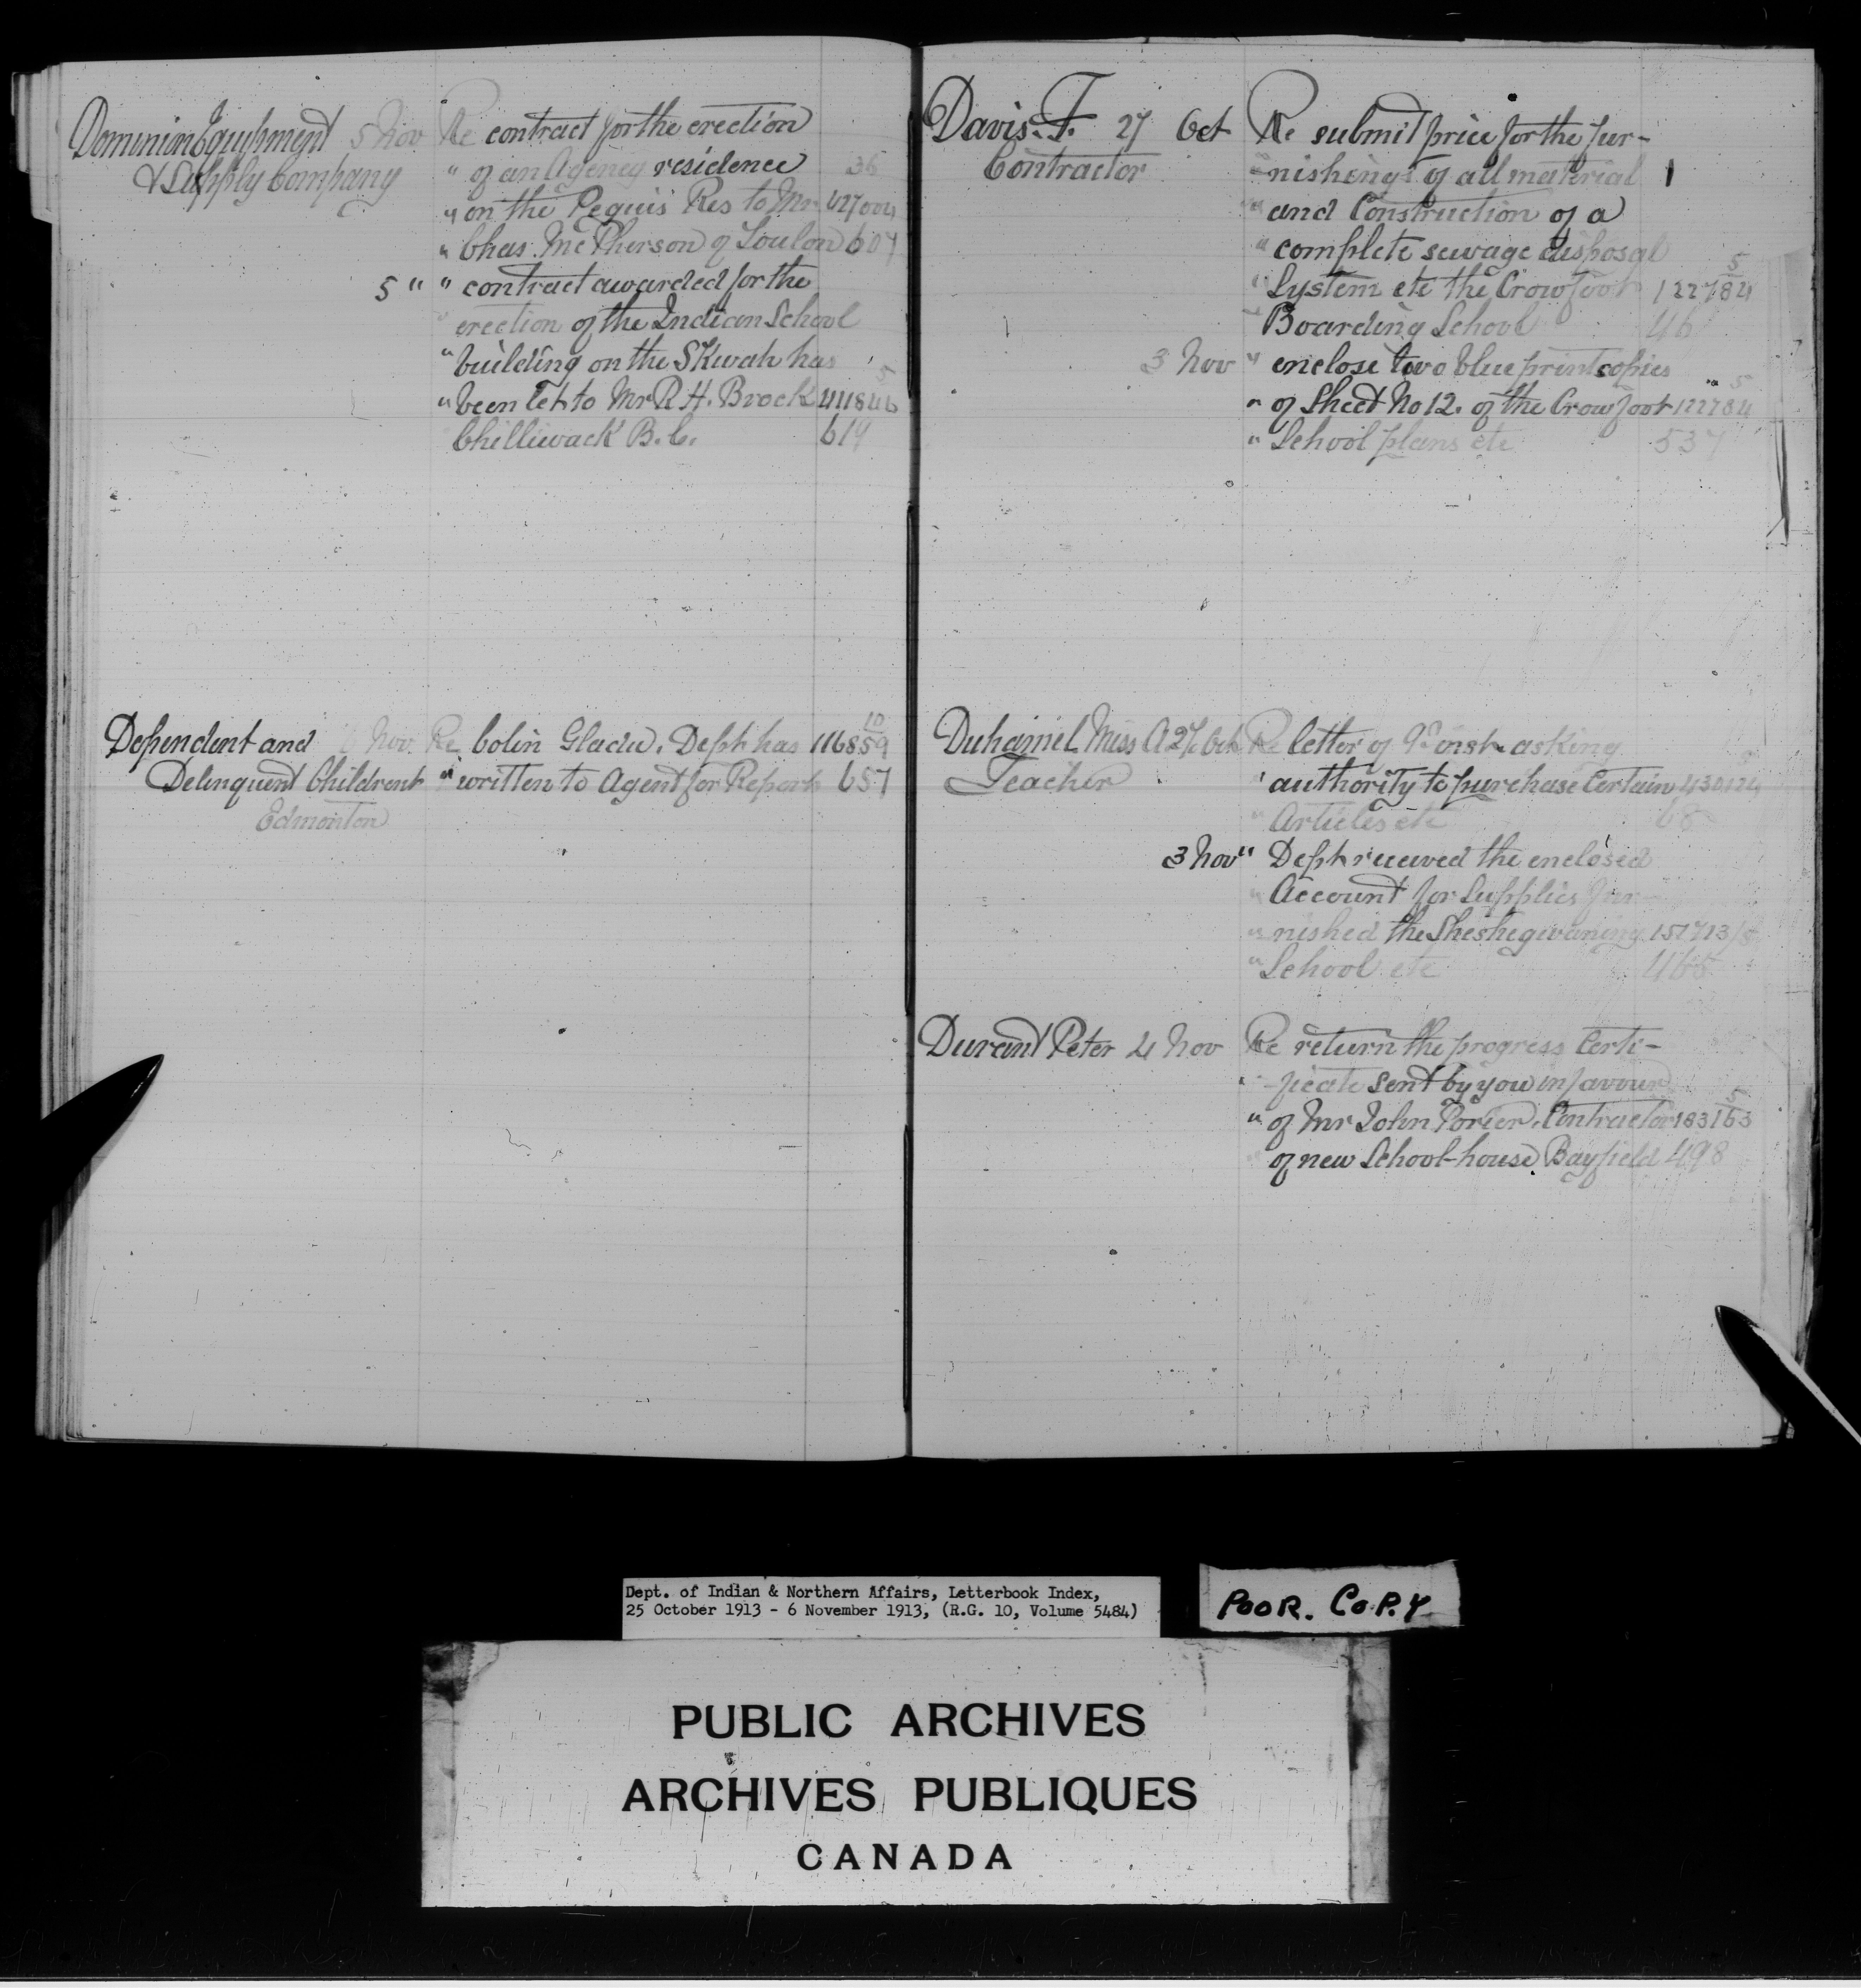 Dominion Equipment 5 Nov Re contract for the erection
& Supply Company " of an Agency residence 36
" on the Peguis Res to Mr 427004
" Chas. McPherson of Toulon 607
5 " " contract awarded for the
" erection of the Indian School
" building on the SKwah has 5
" been let to Mr R. H. Brock 441846
Chilliwack B.C. 619
Dependent and 6 Nov. Re Colin Gladu. Dept has 116859 10
Delinquent Childrent " written to Agent for Report 657
Edmonton
Davis. F. 27 Oct Re submit price for the fur-
Contractor " nishings of all material 1
" and Construction of a
" complete sewage disposal 5
" System etc the Crowfoot 122784
" Boarding School 46
3 Nov " enclose two blue print copies 5
" of Sheet No 12. of the Crowfoot 122784
" School plans etc 537
Duhamel Miss A 27 Oct Re letter of 9th inst asking 5
Teacher " authority to purchase Certain 430124
" Articles etc 68
3 Nov " Dept received the enclosed
" Account for Supplies fur-
" nished the Sheshegwaning 151713/5
" School etc 466
Durant Peter 4 Nov Re return the progress Certi-
" ficate sent by you in favour 5
" of Mr John Porier, Contractor 183163
of new School-house, Bayfield 498
Dept. of Indian & Northern Affairs, Letterbook Index,
25 October 1913 - 6 November 1913, (R.G. 10, Volume 5484)
POOR. COPY
PUBLIC ARCHIVES
ARCHIVES PUBLIQUES
CANADA